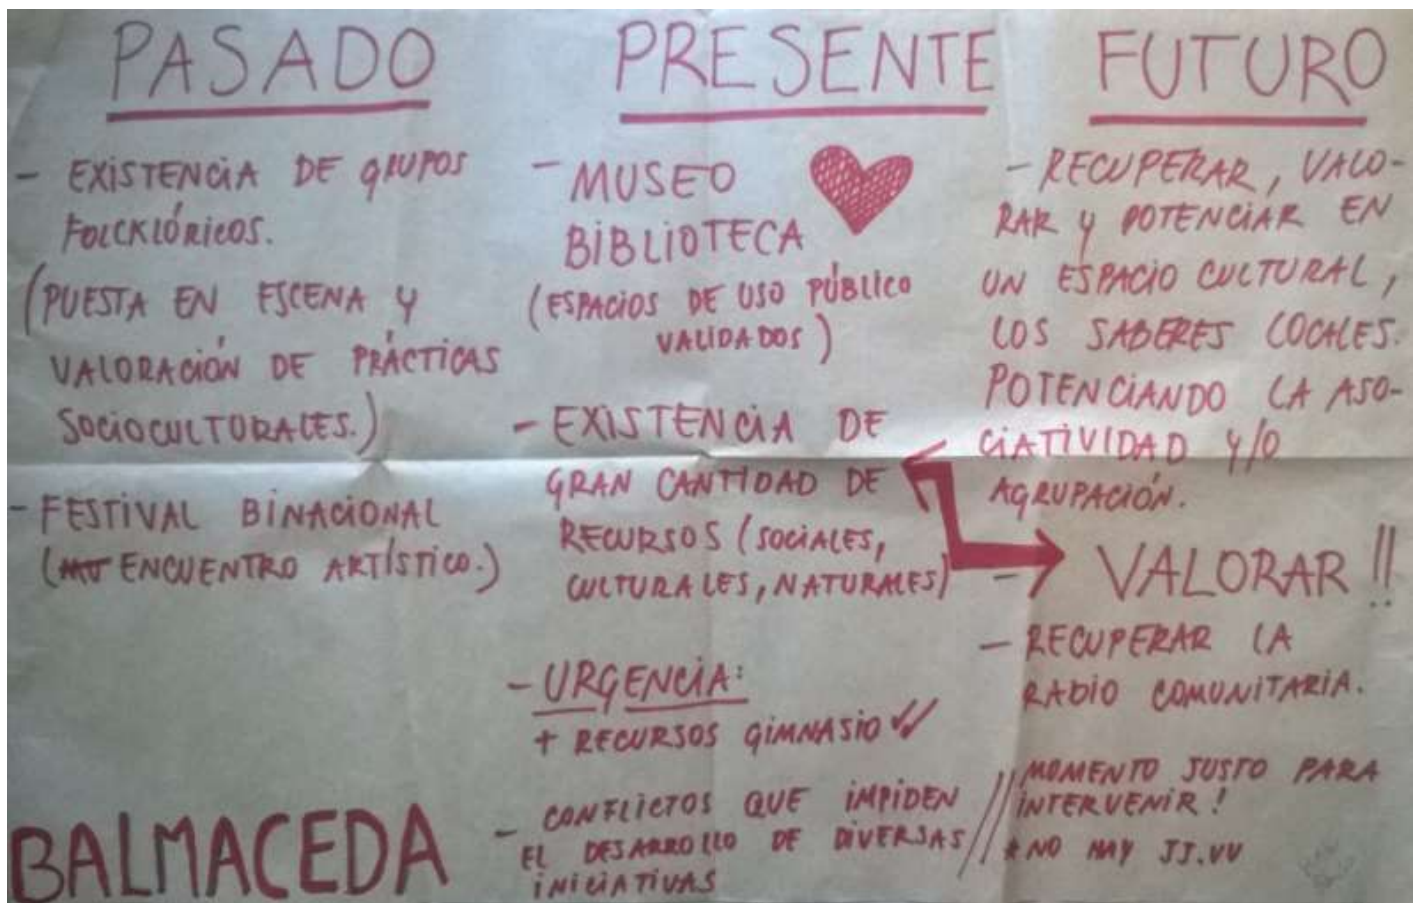 PASADO
- EXISTENCIA DE GRUPOS
FOLCKLÓRICOS.
(PUESTA EN ESCENA Y
VALORACIÓN DE PRÁCTICAS
SOCIOCULTURALES.)
- FESTIVAL BINACIONAL
(ENCUENTRO ARTÍSTICO.)
BALMACEDA
PRESENTE
- MUSEO
BIBLIOTECA
(ESPACIOS DE USO PÚBLICO
VALIDADOS)
- EXISTENCIA DE
GRAN CANTIDAD DE
RECURSOS (SOCIALES,
CULTURALES, NATURALES)
- URGENCIA:
+ RECURSOS GIMNASIO
- CONFLICTOS QUE IMPIDEN
EL DESARROLLO DE DIVERSAS
INICIATIVAS
FUTURO
- RECUPERAR, VALO-
RAR Y POTENCIAR EN
UN ESPACIO CULTURAL,
LOS SABERES LOCALES.
POTENCIANDO LA ASO-
CIATIVIDAD Y/O
AGRUPACIÓN.
- VALORAR!!
- RECUPERAR LA
RADIO COMUNITARIA.
// MOMENTO JUSTO PARA
INTERVENIR!
* NO HAY JJ.VV